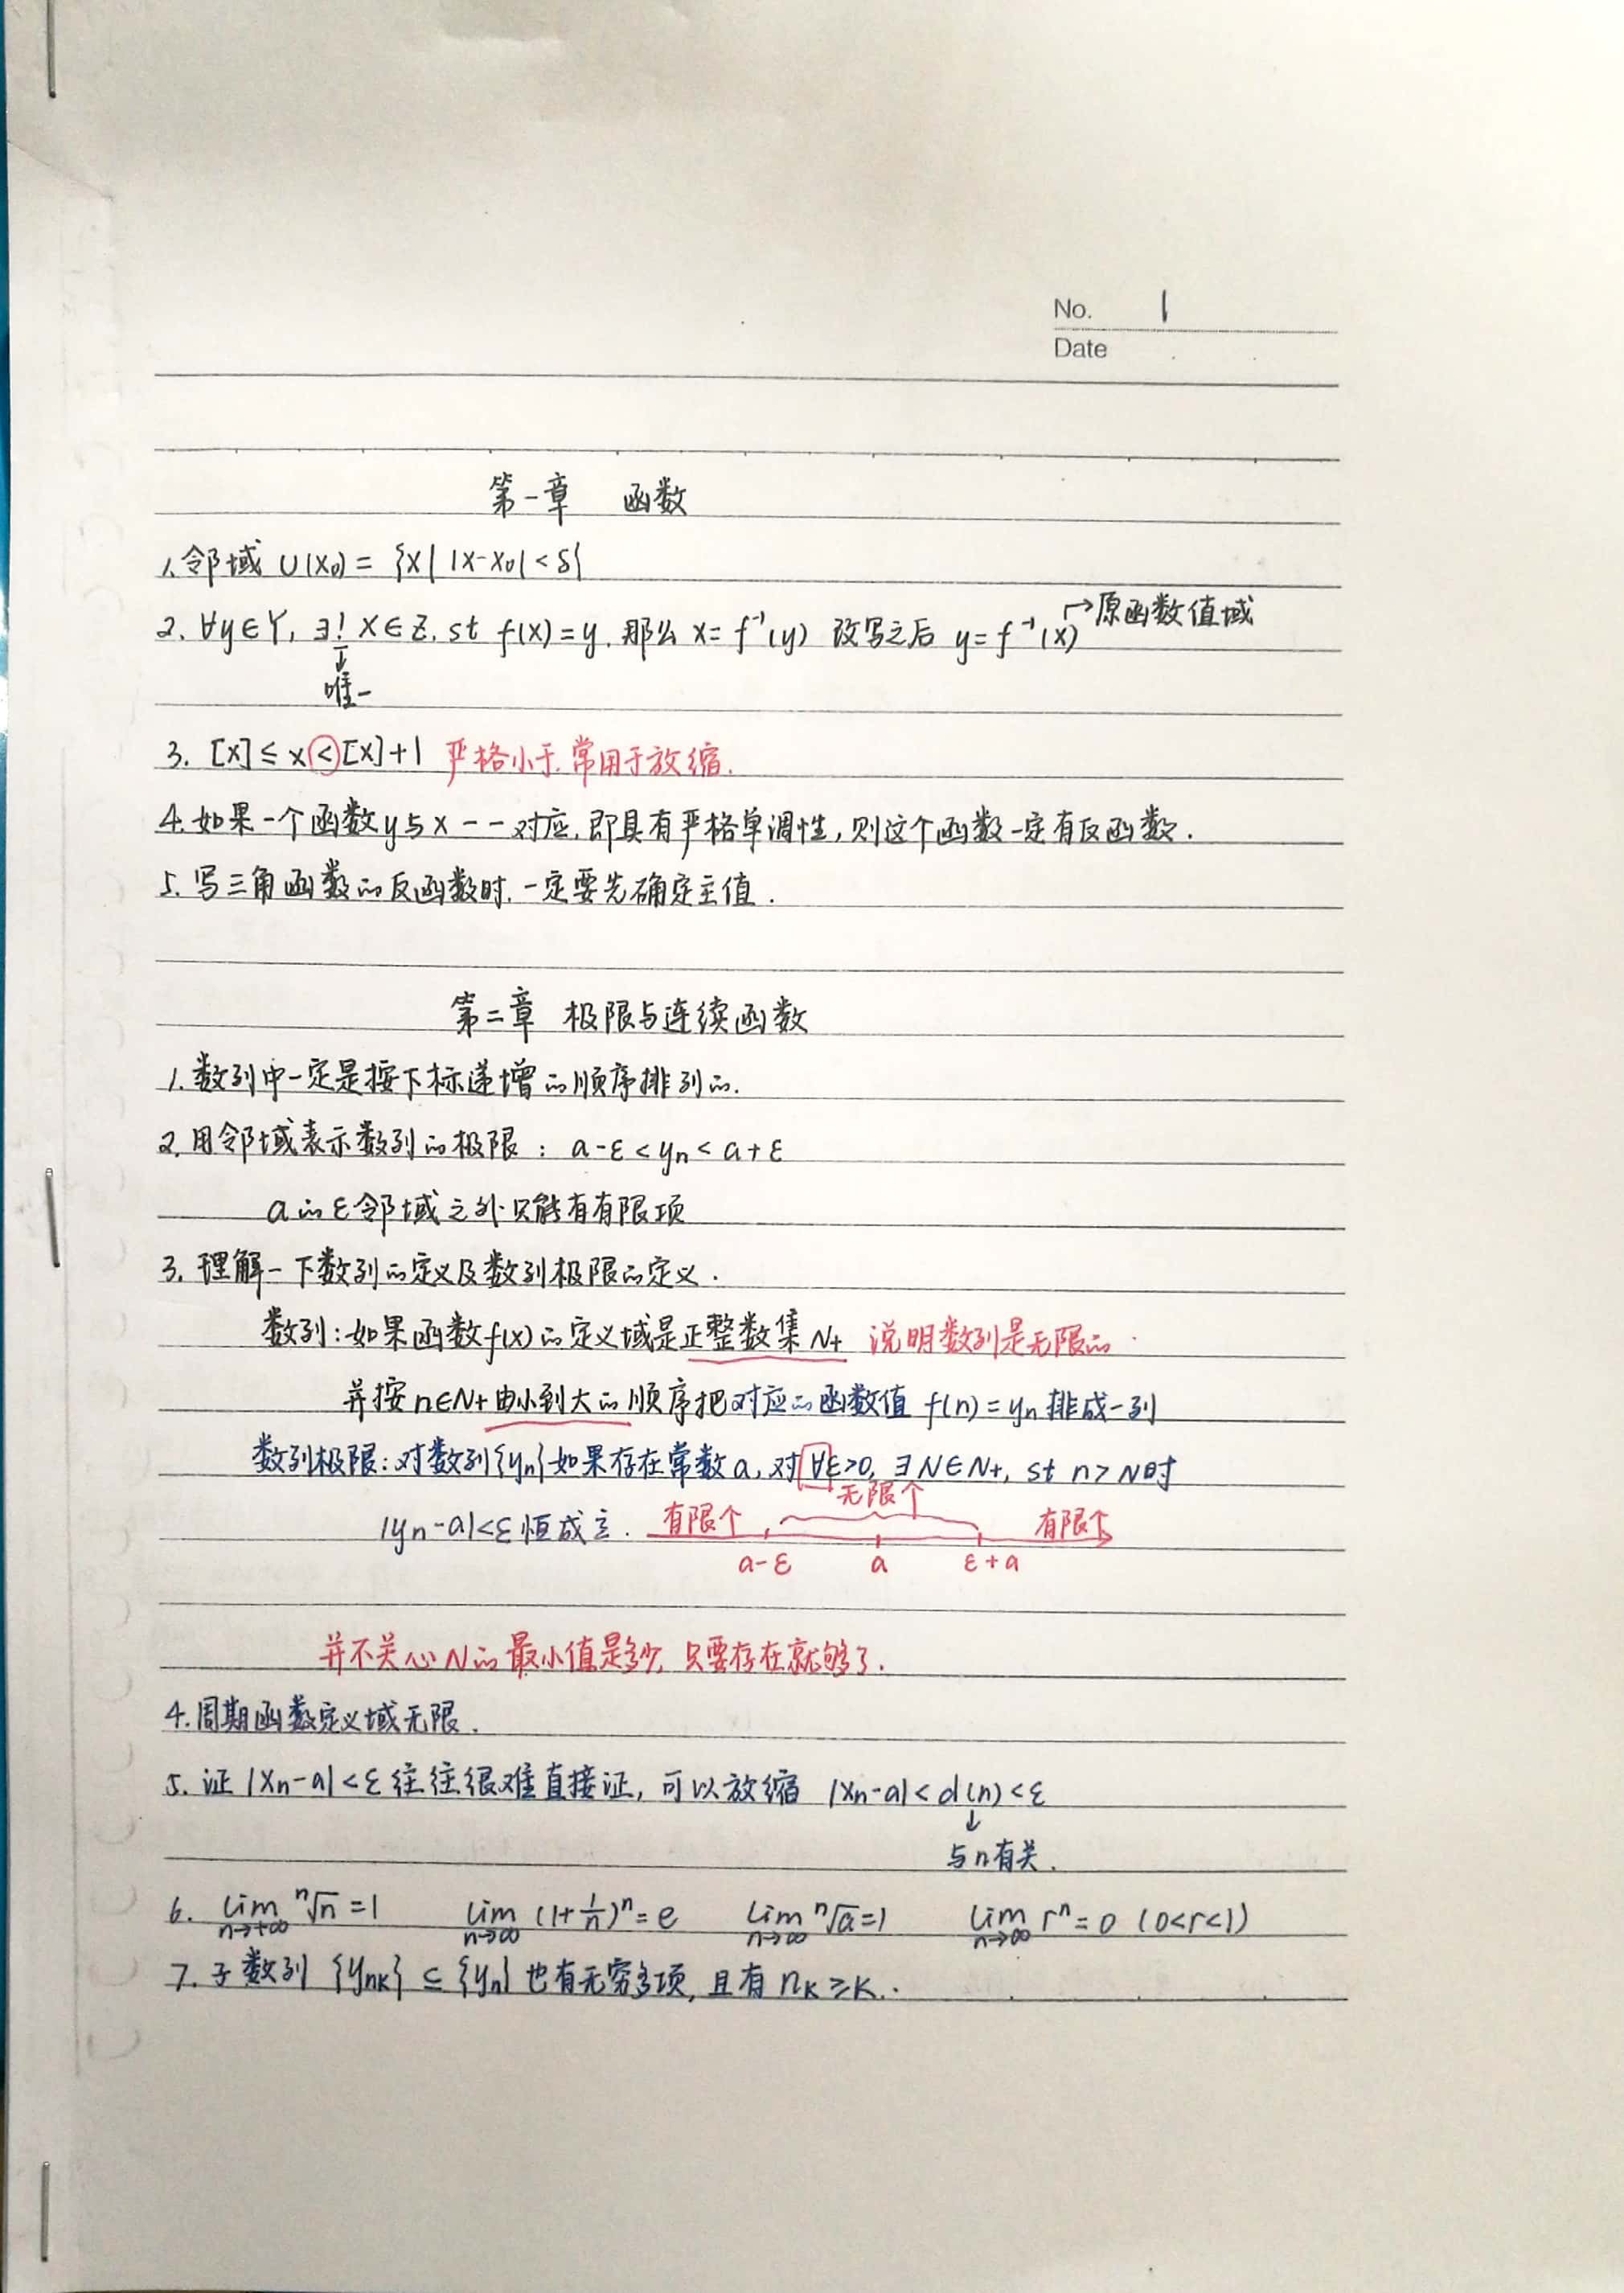 No. 1
Date
第一章 函数
1. 邻域 U(x₀) = {x| |x-x₀| < δ}
2. ∀y∈Y, ∃! x∈Z, st f(x)=y. 那么 x=f⁻¹(y) 改写之后 y=f⁻¹(x) →原函数值域
↓
唯一
3. [x] ≤ x < [x]+1 严格小于, 常用于放缩.
4. 如果一个函数y与x一一对应, 即具有严格单调性, 则这个函数一定有反函数.
5. 写三角函数的反函数时, 一定要先确定主值.
第二章 极限与连续函数
1. 数列中一定是按下标递增的顺序排列的.
2. 用邻域表示数列的极限: a-ε < yₙ < a+ε
a的ε邻域之外只能有有限项
3. 理解一下数列的定义及数列极限的定义.
数列: 如果函数f(x)的定义域是正整数集N+ 说明数列是无限的.
并按n∈N+由小到大的顺序把对应的函数值 f(n)=yₙ 排成一列
数列极限: 对数列{yₙ}如果存在常数a, 对∀ε>0, ∃N∈N+, st n>N时
无限个
|yₙ-a|<ε恒成立. 有限个 有限个
a-ε a ε+a
并不关心N的最小值是多少, 只要存在就够了.
4. 周期函数定义域无限.
5. 证|xₙ-a|<ε往往很难直接证, 可以放缩 |xₙ-a|<d(n)<ε
↓
与n有关.
6. lim n→+∞ ⁿ√n =1 lim n→∞ (1+1/n)ⁿ=e lim n→∞ ⁿ√a=1 lim n→∞ rⁿ=0 (0<r<1)
7. 子数列 {yₙₖ} ⊆ {yₙ} 也有无穷多项, 且有 nₖ≥k.